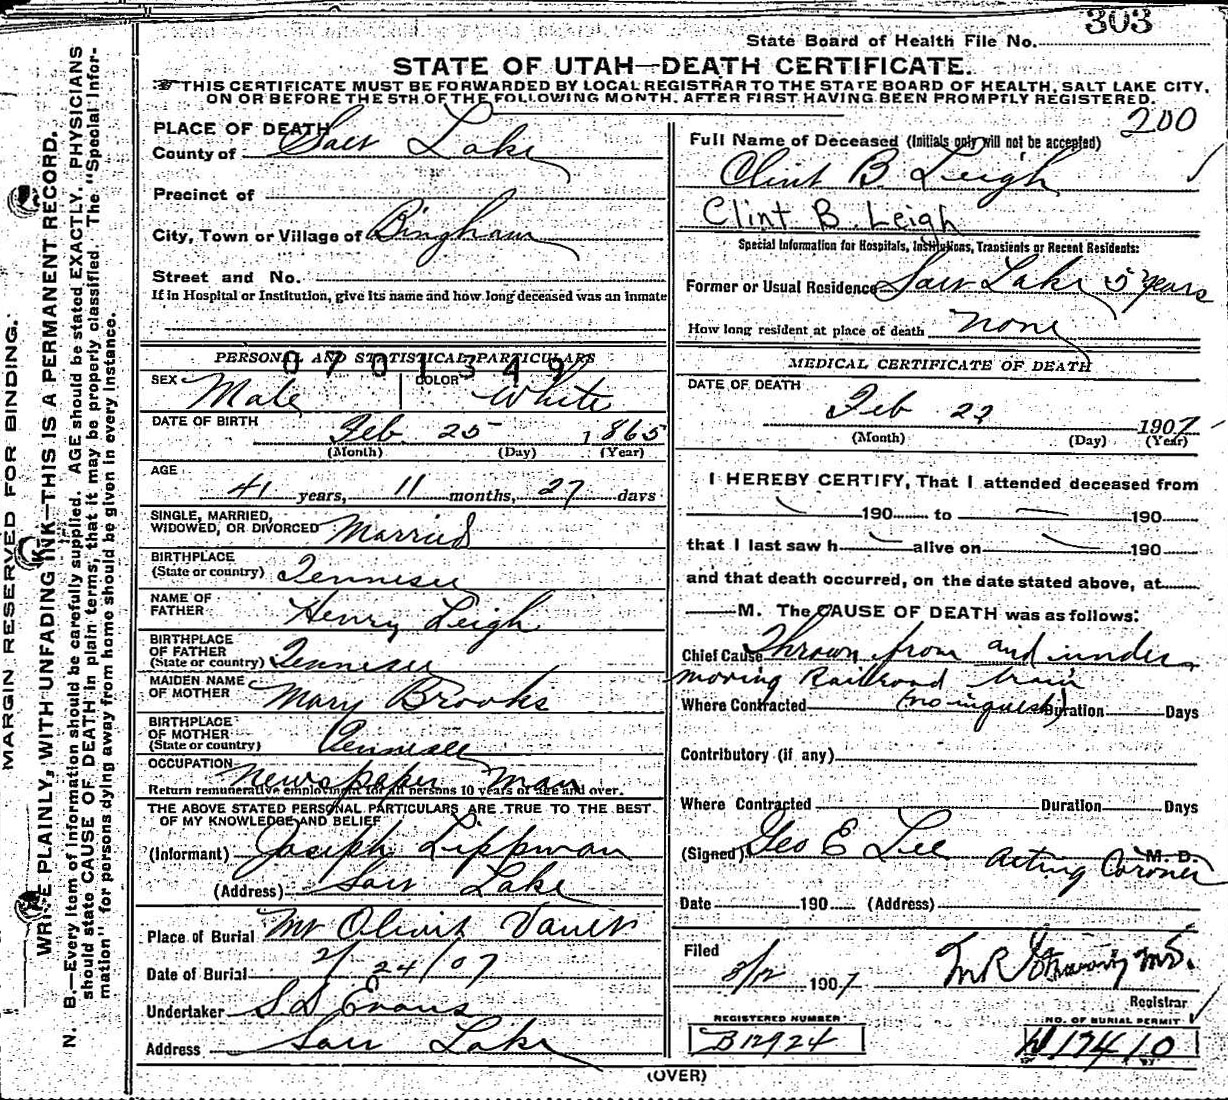 303
State Board of Health File No.
STATE OF UTAH—DEATH CERTIFICATE.
THIS CERTIFICATE MUST BE FORWARDED BY LOCAL REGISTRAR TO THE STATE BOARD OF HEALTH, SALT LAKE CITY,
ON OR BEFORE THE 5TH OF THE FOLLOWING MONTH, AFTER FIRST HAVING BEEN PROMPTLY REGISTERED.
200
MARGIN RESERVED FOR BINDING.
WRITE PLAINLY, WITH UNFADING INK—THIS IS A PERMANENT RECORD.
N. B.—Every item of information should be carefully supplied. AGE should be stated EXACTLY. PHYSICIANS
should state CAUSE OF DEATH in plain terms, that it may be properly classified. The "Special Infor-
mation" for persons dying away from home should be given in every instance.
PLACE OF DEATH
County of Salt Lake
Precinct of
City, Town or Village of Bingham
Street and No.
If in Hospital or Institution, give its name and how long deceased was an inmate
PERSONAL AND STATISTICAL PARTICULARS
0701349
SEX Male COLOR White
DATE OF BIRTH Feb 25 1865
(Month) (Day) (Year)
AGE
41 years, 11 months, 27 days
SINGLE, MARRIED,
WIDOWED, OR DIVORCED Married
BIRTHPLACE
(State or country) Tennesee
NAME OF
FATHER Henry Leigh
BIRTHPLACE
OF FATHER
(State or country) Tennesee
MAIDEN NAME
OF MOTHER Mary Brooks
BIRTHPLACE
OF MOTHER
(State or country) Tennesee
OCCUPATION Newspaper Man
Return remunerative employment for all persons 10 years of age and over.
THE ABOVE STATED PERSONAL PARTICULARS ARE TRUE TO THE BEST
OF MY KNOWLEDGE AND BELIEF
(Informant) Joseph Lippman
(Address) Salt Lake
Place of Burial Mt Olivit Vault
Date of Burial 2/24/07
Undertaker S D Evans
Address Salt Lake
Full Name of Deceased (Initials only will not be accepted)
Clint B. Leigh
Clint B. Leigh
Special Information for Hospitals, Institutions, Transients or Recent Residents:
Former or Usual Residence Salt Lake 5 years
How long resident at place of death none
MEDICAL CERTIFICATE OF DEATH
DATE OF DEATH
Feb 22 1907
(Month) (Day) (Year)
I HEREBY CERTIFY, That I attended deceased from
190 to 190
that I last saw h alive on 190
and that death occurred, on the date stated above, at
M. The CAUSE OF DEATH was as follows:
Chief Cause Thrown from and under
moving Railroad train
Where Contracted (no inquest) Duration Days
Contributory (if any)
Where Contracted Duration Days
(Signed) Geo E Lee Acting Coroner M. D.
Date 190 (Address)
Filed
3/12 1907 M R
Registrar
REGISTERED NUMBER NO. OF BURIAL PERMIT
B12924 17410
(OVER)